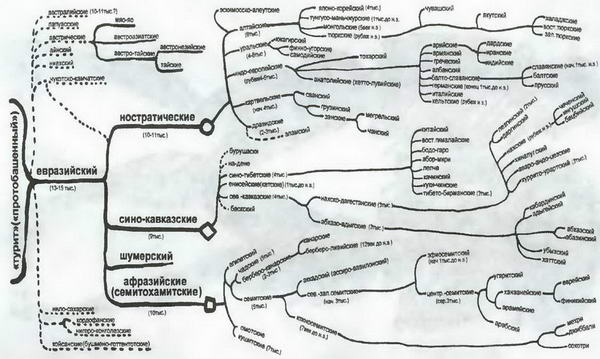 австралийские (10-11тыс.?)
папуасские
австрические
айнский
нивхский
чукотско-камчатские
мяо-яо
австроазиатские
австро-тайские
австронезийские
тайские
«турит» («протобашенный»)
евразийский
(13-15 тыс.)
ностратические
(10-11тыс.)
сино-кавказские
(9тыс.)
шумерский
афразийские
(семитохамитские)
(10тыс.)
нило-сахарские
кордофанские
нигеро-конголезские
койсанские (бушмено-готтентотские)
эскимосско-алеутские
алтайские
(6тыс.)
японо-корейские (4тыс.)
тунгусо-маньчжурские (1тыс.до н.э.)
монгольские (5век н.э.)
тюркские (рубеж н.э.)
чувашский
якутский
халаджские
вост.тюркские
зап.тюркские
уральские
юкагирский
финно-угорские
самодийские
индо-европейские
тохарский
анатолийские (хетто-лувийские)
арийские
армянский
греческий
албанский
балто-славянские
германские (конец 1тыс.до н.э.)
италийские
кельтские (рубеж н.э.)
дардские
иранские
индийские
славянские (нач.1тыс.н.э.)
балтские
прусский
картвельские
(нач.4тыс.)
сванский
грузинский
занские
мегрельский
чанский
дравидские
(2-3тыс.)
эламский
бурушаски
на-дене
сино-тибетские (4тыс.)
енисейские(кетские) (1тыс.до н.э.)
сев.-кавказские (4тыс.)
баскский
китайский
вост.гималайские
бодо-гаро
абор-мири
лепча
качинский
куки-чинские
тибето-бирманские (3тыс.)
нахско-дагестанские (3тыс.)
лезгинские (2тыс.)
даргинский
нахские (рубеж н.э.)
чеченский
ингушский
бацбийский
хиналугский
аваро-андо-цезские
хуррито-урартский (3тыс.)
абхазо-адыгские (3тыс.)
кабардинский
адыгейский
абхазский
абазинский
убыхский
хаттский
египетский
чадские (5тыс.)
берберо-канарские
(2-3тыс.)
канарские
берберо-ливийские (12век до н.э.)
семитские
(5тыс.)
аккадский (ассиро-вавилонский)
сев.-зап.семитские
(нач.3тыс.)
эфиосемитский
(нач.1тыс.до н.э.)
центр.-семитские
(сер.3тыс.)
угаритский
ханаанейские
арамейские
арабский
еврейский
финикийский
южносемитские
(7век до н.э.)
мехри
джиббали
сокотри
омотские
кушитские (7тыс.)